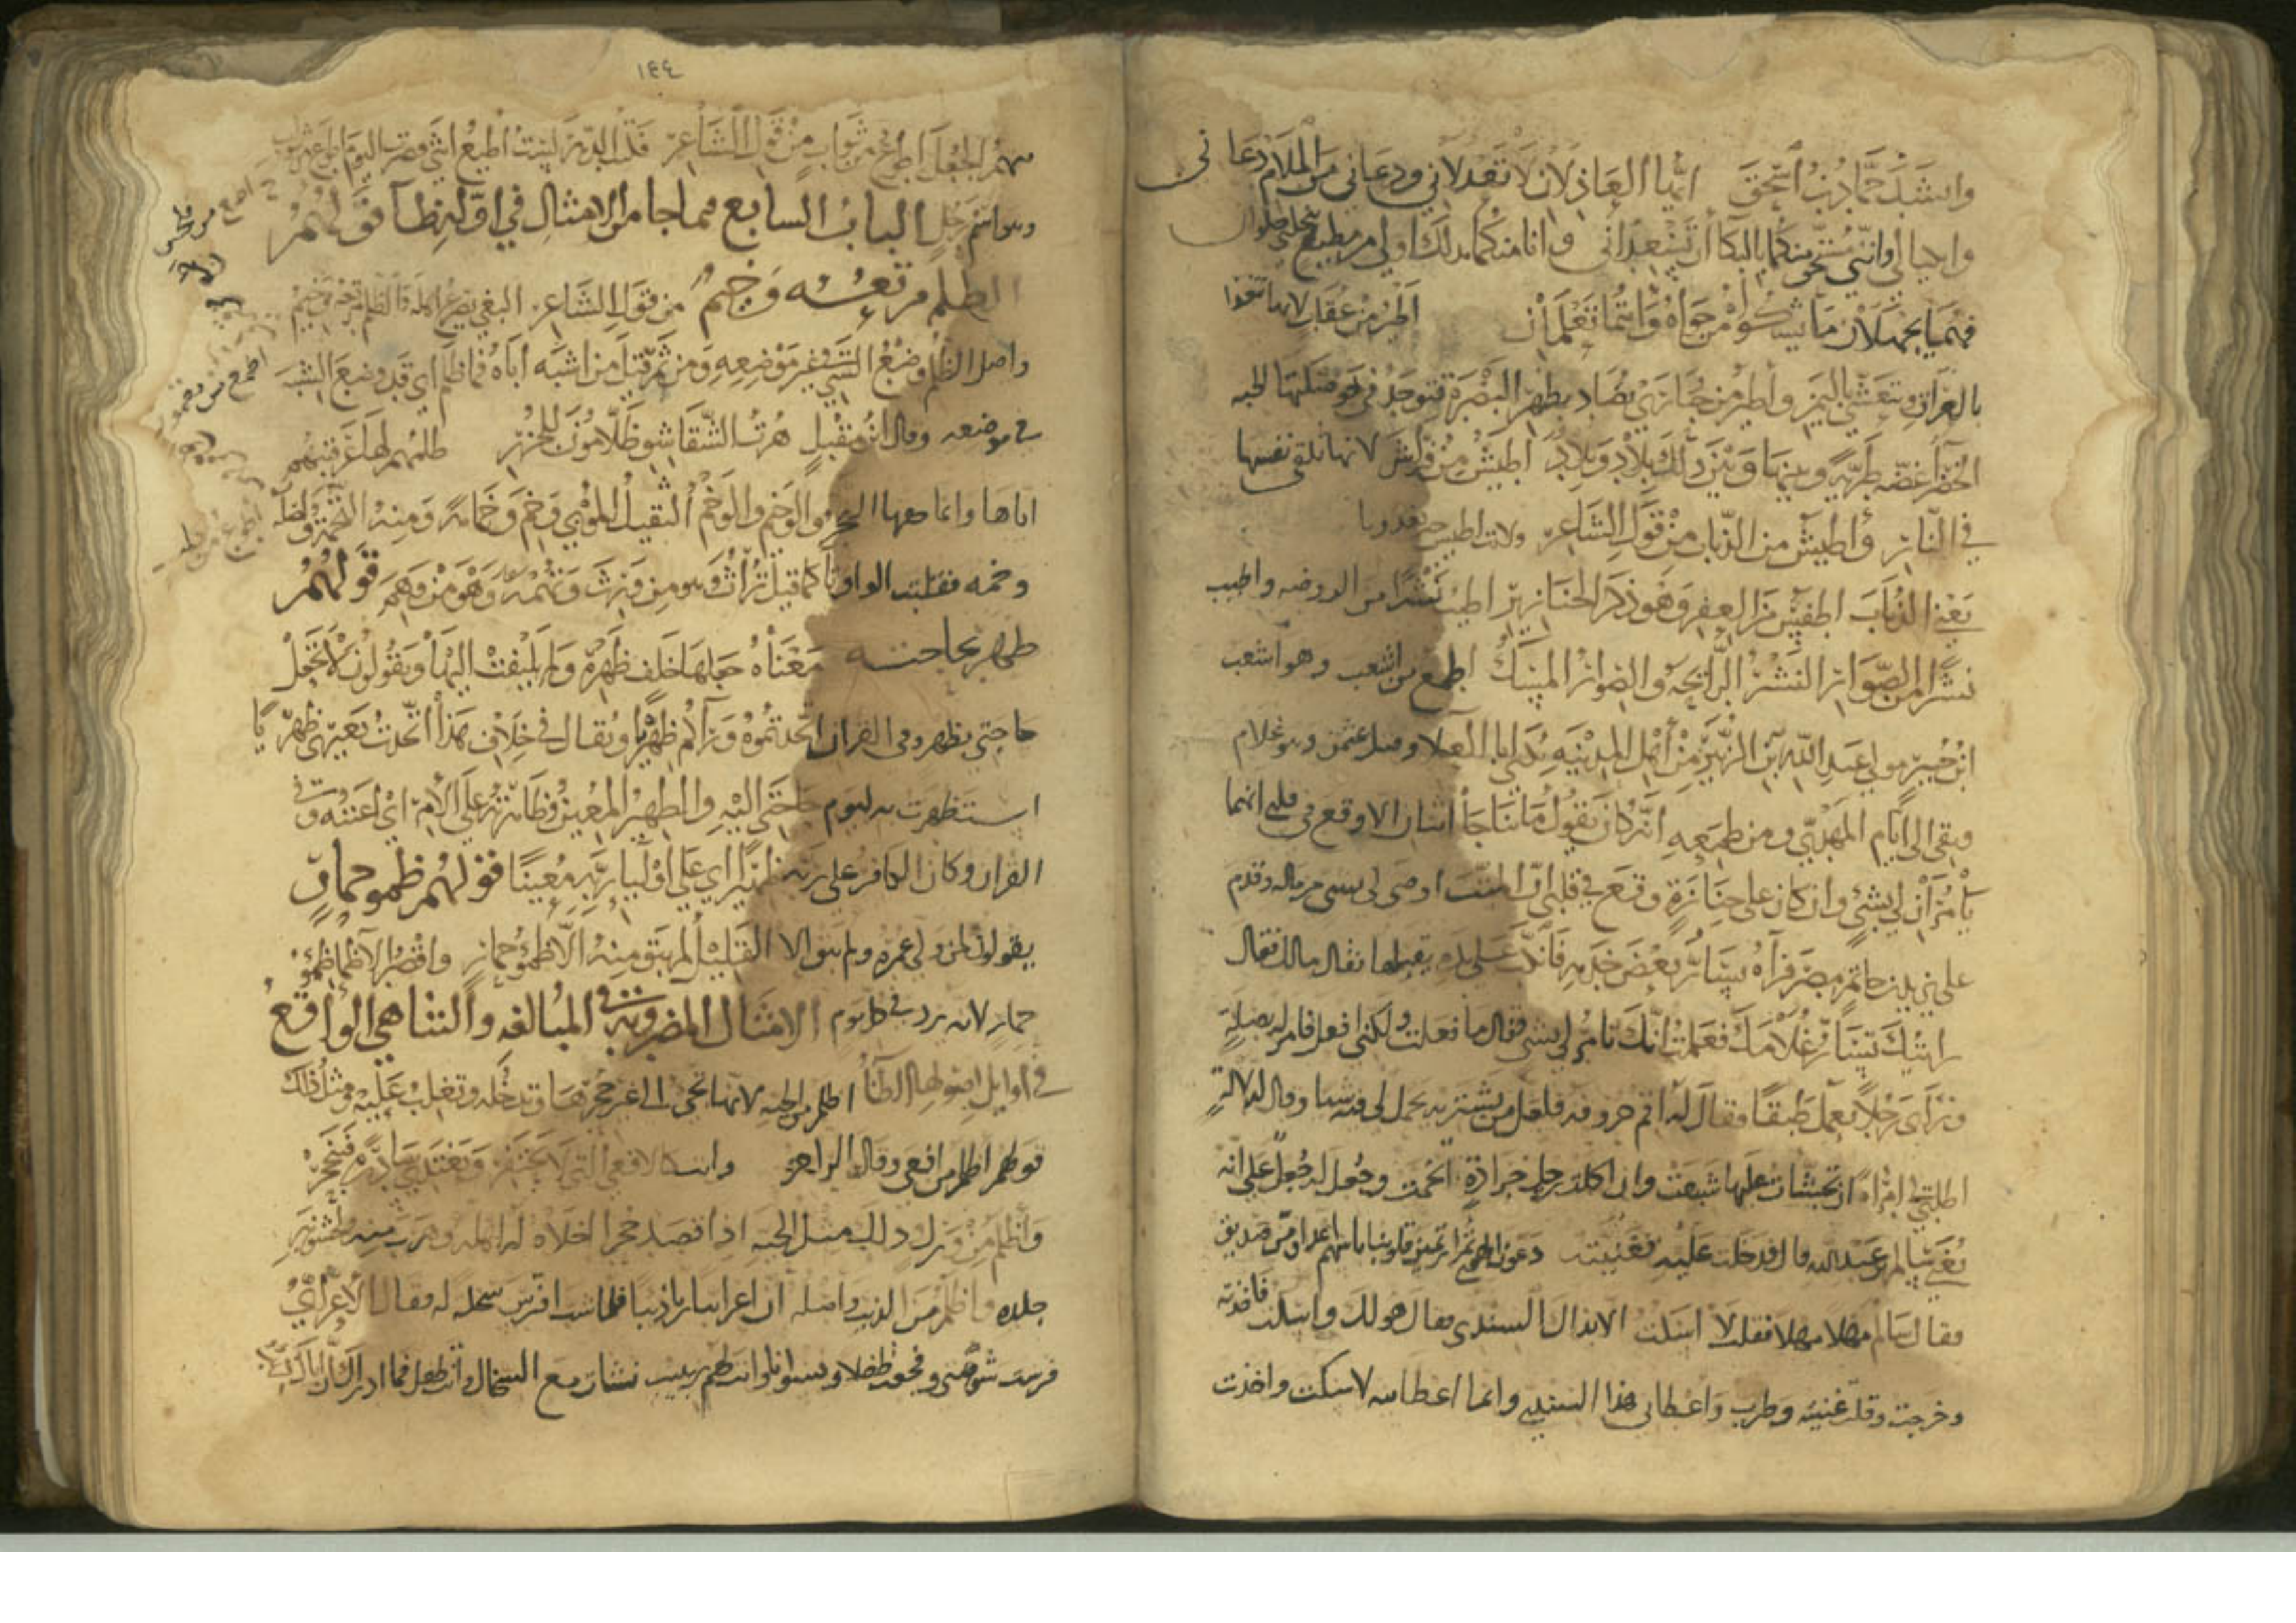 وانشد حماد بن اسحق ايها العاذلان لا تعذلاني ودعاني من الملام دعاني
وابكيا لي فانني مستحق منكما بالبكا ان تسعداني وانا منكما بذلك اولى من مطيع بنخلتي حلوان
فهما يجهلان ما يشكو من جواه وانتما تعلمان اطير من عقاب لانها تتغذا
بالعراق وتتعشى باليمن واطير من حبارى تصاد بظهر البصرة فتوجد في حوصلتها الحبه
الخضرا غضه طريه وبينها وبين ذلك بلاد وبلاد اطيش من فراش لانها تلقي نفسها
في النار واطيش من الذباب من قول الشاعر ولانت اطيش حين تغدو
يعني الذباب اطفس من العفر وهو ذكر الخنازير اطيب نشرا من الروضه واطيب
نشرا من الصوار النشر الرايحه والصوار المسك اطمع من اشعب وهو اشعب
ابن جبير مولى عبد الله بن الزبير من اهل المدينه يكنى ابا العلا وهو غلام
وبقي الى ايام المهدي ومن طمعه انه كان يقول ما تناجا اثنان الا وقع في قلبي انهما
يامران لي بشي وان كان على جنازة وقع في قلبي ان الميت اوصى لي بشي من ماله وقدم
على يزيد بن حاتم مصر فرآه يسار بعض خدمه فانكب على يده يقبلها فقال مالك فقال
رايتك تسار غلامك فعلمت انك تامر لي بشي فقال ما فعلت ولكني افعل فامر له بصلة
وراى رجلا يعمل طبقا فقال له اتم حروفه فلعل من يشتريه يحمل لي فيه شيا وقال لدلالة
اطلبي لي امراة ان تجشات عليها شبعت وان اكلت رجل جرادة اتخمت وجعل له جعل على انه
يغني سالم بن عبد الله قال فدخلت عليه فغنيته دعون الهوى ثم ارتمين قلوبنا باسهم اعدا وهن صديق
فقال سالم مهلا مهلا فقلت لا اسكت الا بذاك السندي فقال هو لك واسكت فاخذته
وخرجت وقلت غنيته وطرب واعطاني هذا السندي وانما اعطانيه لاسكت واخذت
١٤٤
منهم الجعل اطوع من ثواب من قول الشاعر فلت الدهر ليست اطيع انثى فصرت اليوم اطوع من ثواب
وهو اسم رجل الباب السابع فيما جا من الامثال في اوله ظا قولهم
الظلم مرتعه وخيم من قول الشاعر البغي يصرع اهله والظلم مرتعه وخيم
واصل الظلم وضع الشي غير موضعه ومن ثم قيل من اشبه اباه فما ظلم اي قد وضع الشبه
في موضعه وقال ابن مقبل هرت الشقاشق ظلامون للجزر ظلمهم لها عرقبتهم
اياها وانما حقها النحر والوخم والوخم الثقيل الموبي وخم وخامة ومنه التخمة واصله
وخمه فقلبت الواو تا كما قيل تراث وهو من ورث وتهمه وهو من وهم قولهم
ظهر بحاجته معناه جعلها خلف ظهره ولم يلتفت اليها ويقولون لا تجعل
حاجتي بظهر وفي القران اتخذتموه وراكم ظهريا ويقال في خلاف هذا اتخذت بعيري ظهريا
استظهرت به ليوم حاجتي اليه والظهير المعين وظاهرته على الامر اي اعنته وفي
القران وكان الكافر على ربه ظهيرا اي على اوليا ربه معينا قولهم ظمو حمار
يقولون لمن ولى عمره ولم يبق الا القليل لم يبق منه الا ظمو حمار واقصر الاظما ظمو
حمار لانه يرد في كل يوم الامثال المضروبه في المبالغه والتناهي الواقع
في اوايل اصولها الظا اظلم من الحيه لانها تجي الى غير جحرها وتدخله وتغلب عليه ومثل ذلك
قولهم اظلم من افعى وقال الراجز وانت كالافعى التي لا تحتفر وتغتدي سادرة فتنجحر
واظلم من ورل وذلك مثل الحيه اذا قصد جحرا اخلاه له اهله وهربت منه لخشونه
جلده واظلم من الذيب واصله ان اعرابيا ربا ذيبا فلما شب افترس سخله له فقال الاعرابي
فرست شويهتي وفجعت طفلا ونسوانا وانت لهم ربيب نشات مع السخال وانت طفل فما ادراك ان اباك ذيب